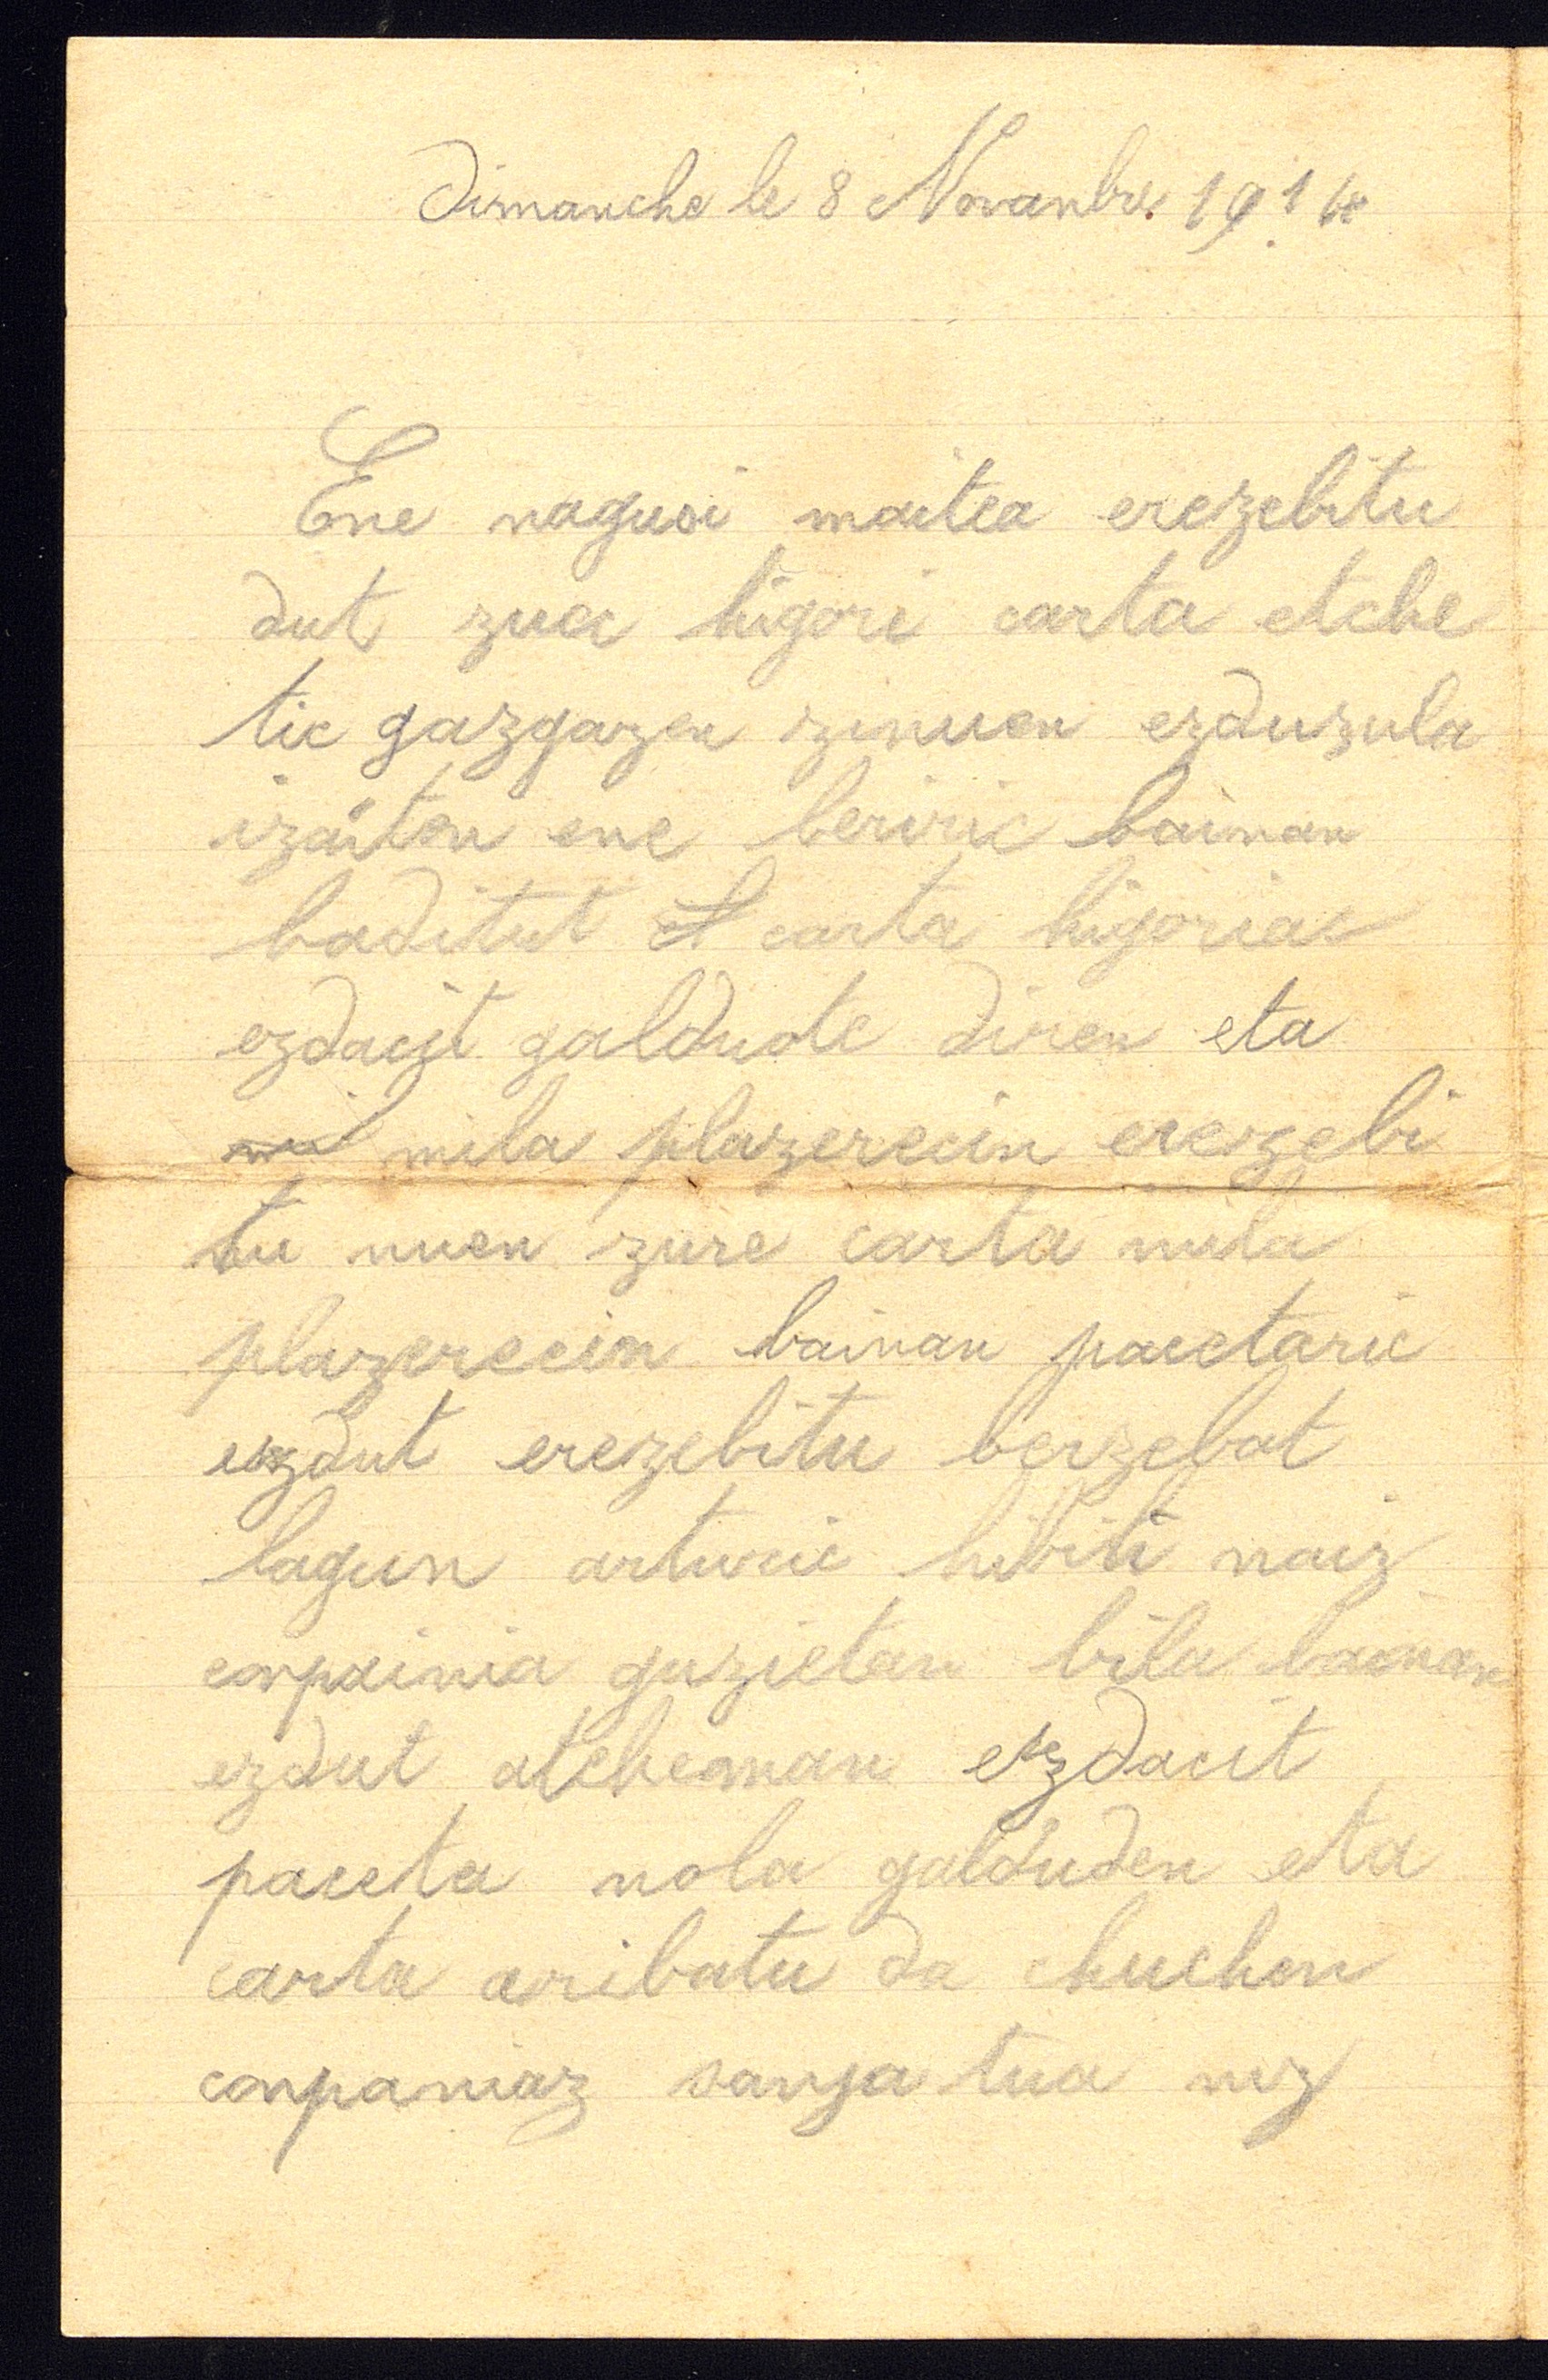 Dimanche le 8 Novanbre 1914
Ene nagusi maitea erezebitu
dut zuci higori carta etche
tic gazgazen zinuen ezduzula
izaiten ene beriric bainan
baditut carta higorias
ezdacit galduote diren eta
mila plazerecin erezebi
tu nuen zure carta mila
plazerecin bainan pacetaric
ezdut erezebitu berzebat
lagun arturic hibili naiz
conpainia guzietan bila bainan
ezdut atcheman ezdacit
paceta nola galduden eta
carta aribatu da chuchen
conpaniaz sanjatua niz